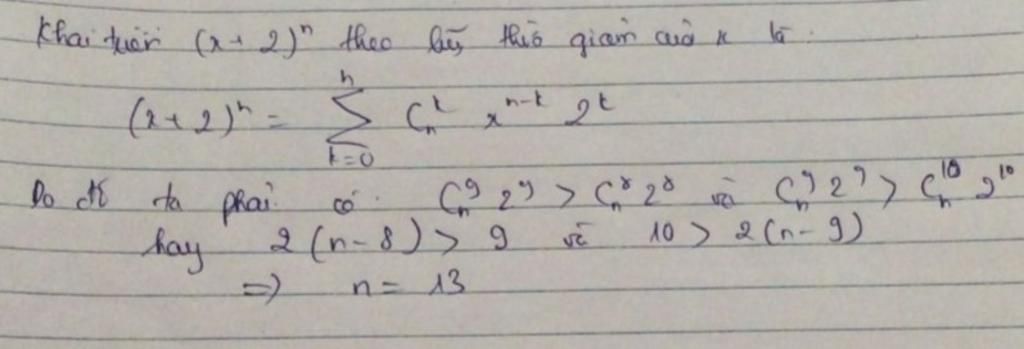 Khai triển (x + 2)ⁿ theo luỹ thừa giảm của x là
(x + 2)ⁿ = ∑_{k=0}^{n} C_n^k x^{n-k} 2^k
Do đó ta phải có C_n^9 2^9 > C_n^8 2^8 và C_n^9 2^9 > C_n^{10} 2^{10}
hay 2(n - 8) > 9 và 10 > 2(n - 9)
=> n = 13